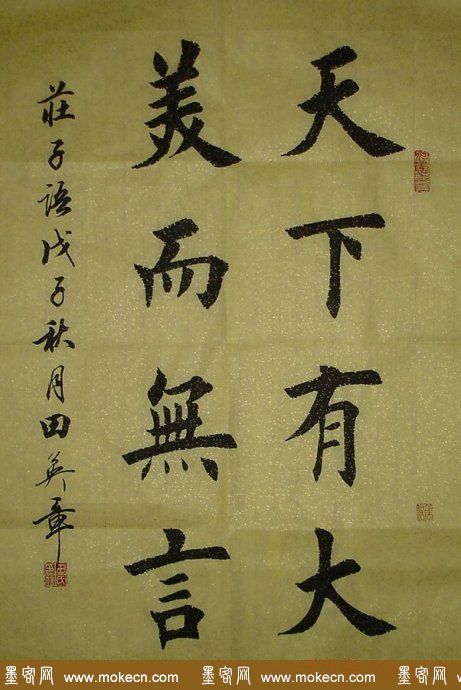 天下有大
美而無言
莊子語戊子秋月田英章
墨客网 www.mokecn.com 墨客网 www.mokecn.com 墨客网 www.mokecn.com